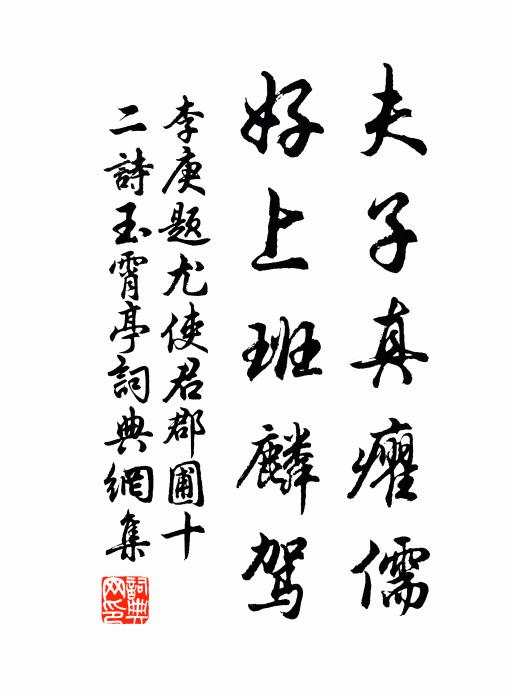 夫子真癯儒
好上班麟驾
李庚题尤使君郡圃十
二詩玉霄亭詞典網集
詞典网印